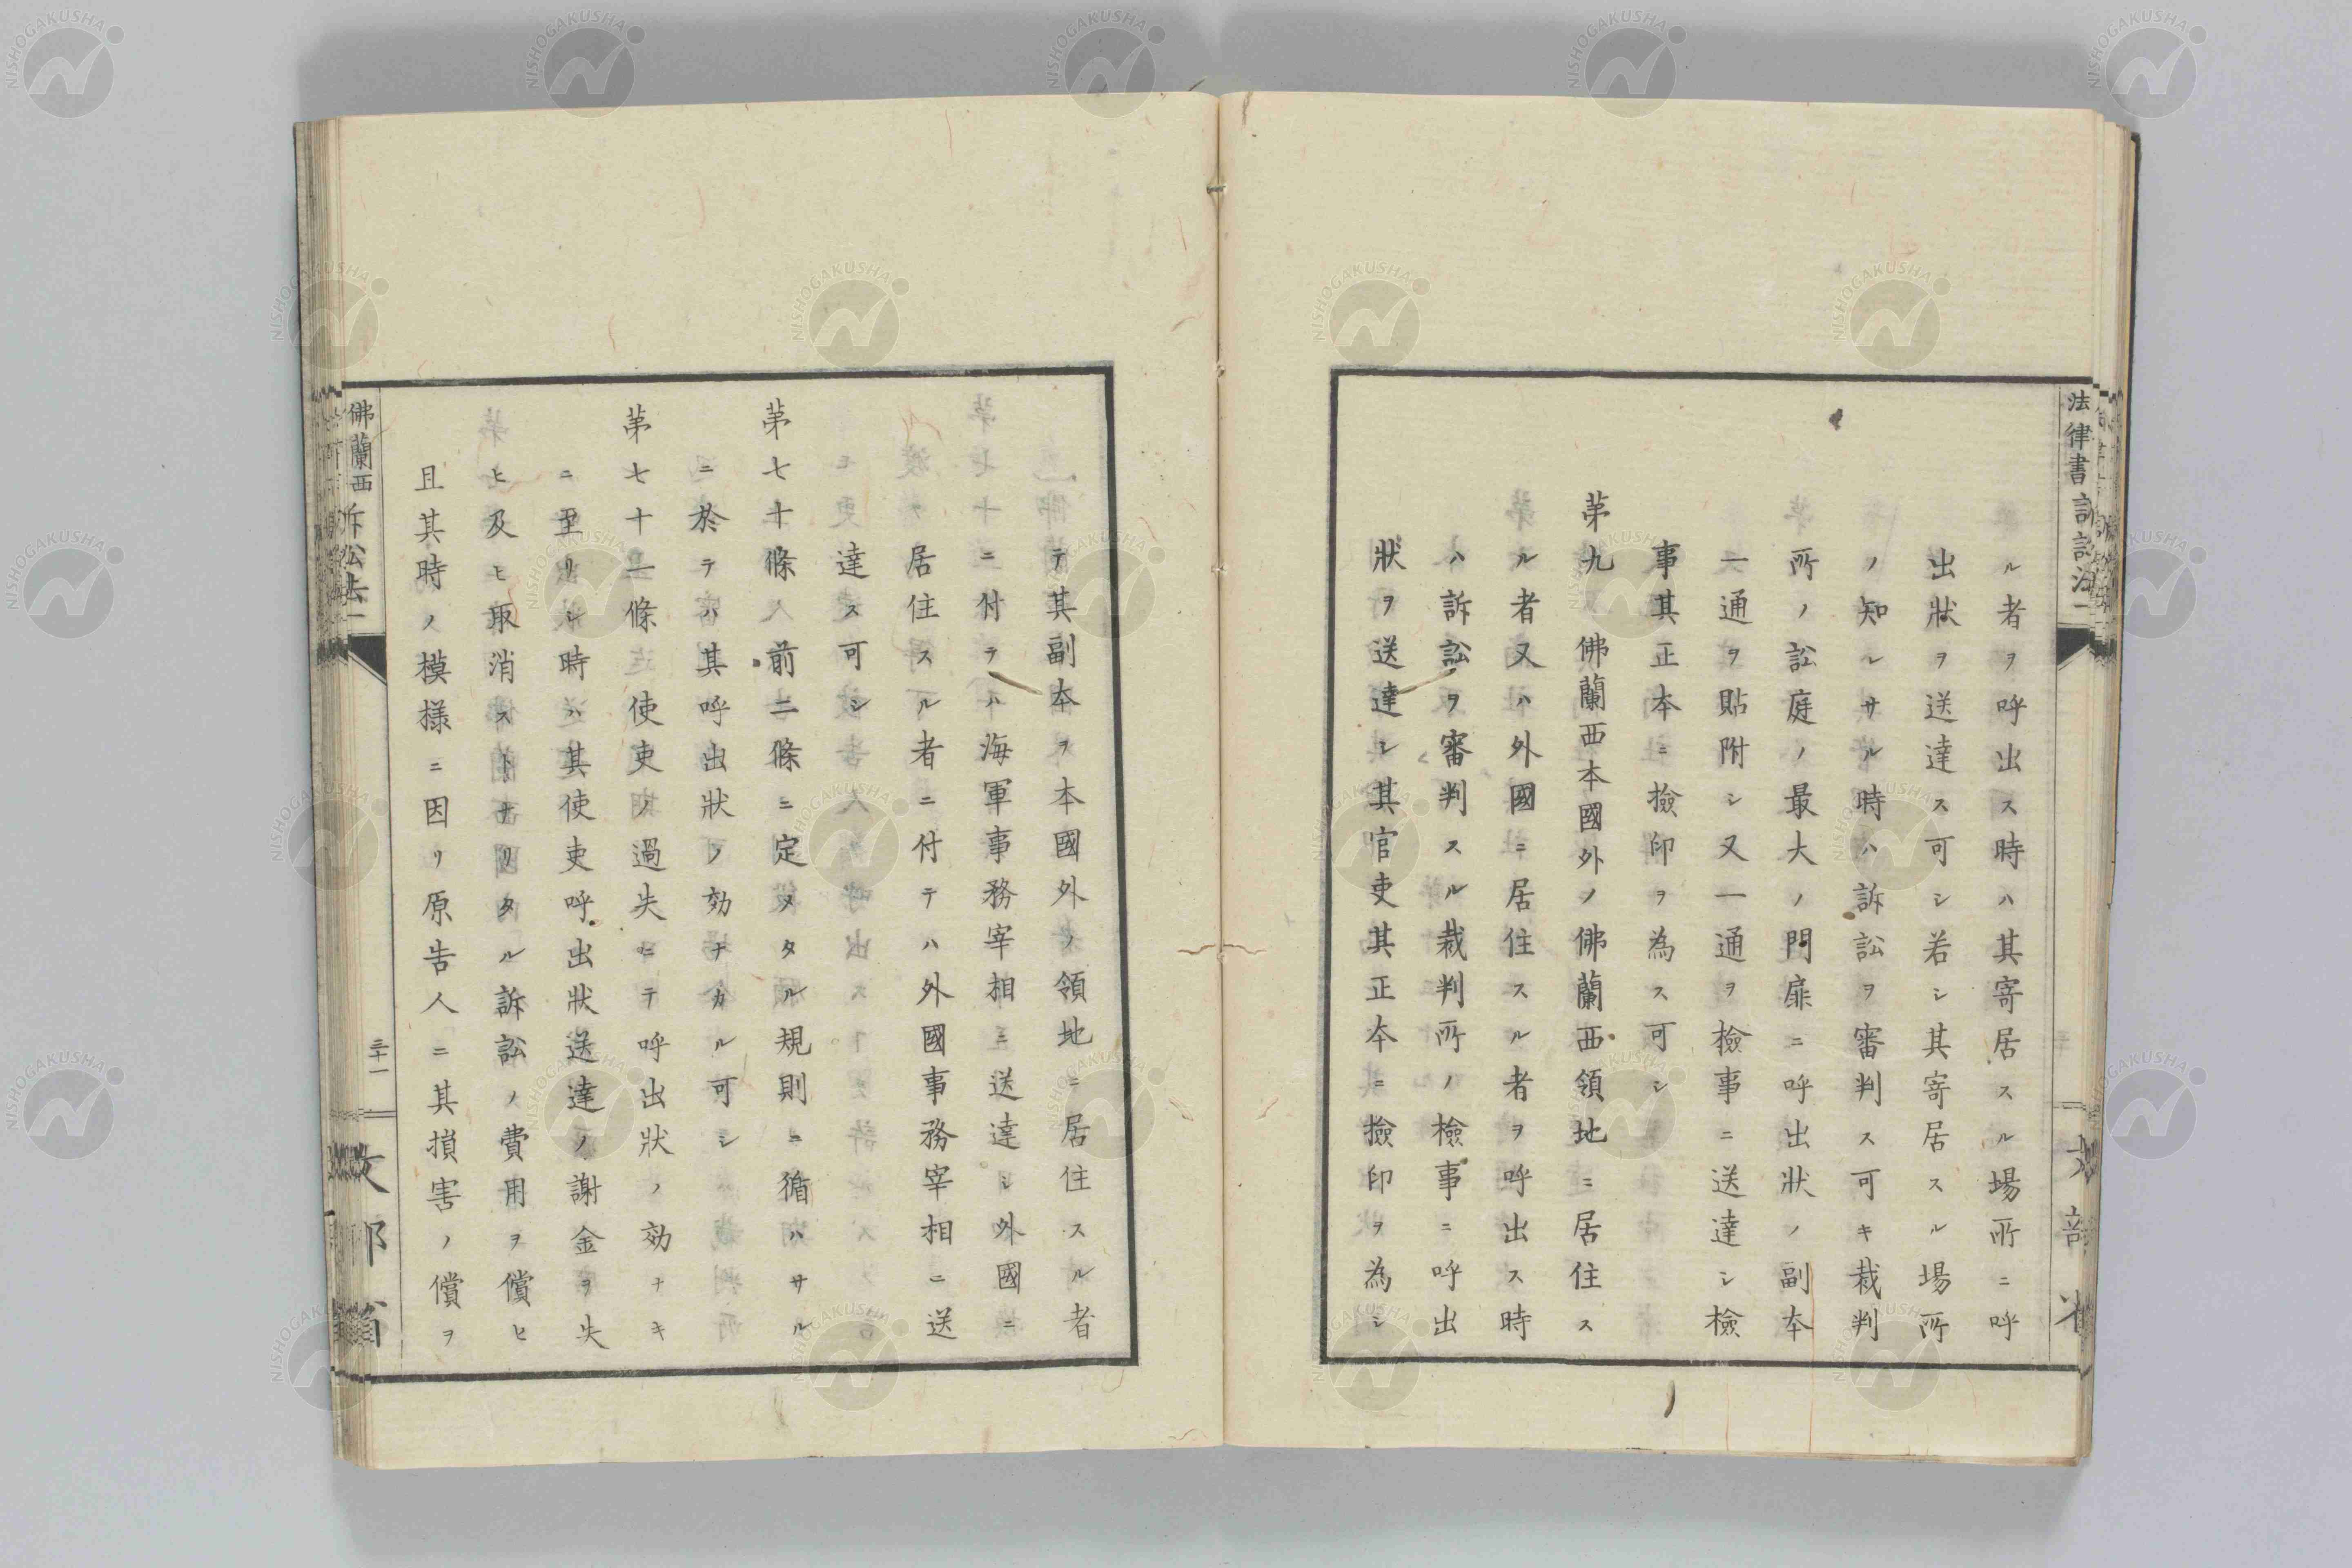 法律書訴訟法一
ル者ヲ呼出ス時ハ其寄居スル場所ニ呼
出狀ヲ送達ス可シ若シ其寄居スル場所
ノ知レサル時ハ訴訟ヲ審判ス可キ裁判
所ノ訟庭ノ最大ノ門扉ニ呼出狀ノ副本
一通ヲ貼附シ又一通ヲ檢事ニ送達シ檢
事其正本ニ撿印ヲ為ス可シ
第九 佛蘭西本國外ノ佛蘭西領地ニ居住ス
ル者又ハ外國ニ居住スル者ヲ呼出ス時
ハ訴訟ヲ審判スル裁判所ノ檢事ニ呼出
狀ヲ送達シ其官吏其正本ニ撿印ヲ為シ
テ其副本ヲ本國外ノ領地ニ居住スル者
ニ付テハ海軍事務宰相ニ送達シ外國ニ
居住スル者ニ付テハ外國事務宰相ニ送
達ス可シ
第七十條 前二條ニ定メタル規則ニ循ハサル
ニ於テハ其呼出狀ノ効ナカル可シ
第七十一條 使吏ノ過失ニテ呼出狀ノ効ナキ
ニ至リシ時ハ其使吏呼出狀送達ノ謝金ヲ失
ヒ及ヒ取消ストナリタル訴訟ノ費用ヲ償ヒ
且其時ノ模様ニ因リ原告人ニ其損害ノ償ヲ
佛蘭西訴訟法一
三十一
文部省
NISHOGAKUSHA